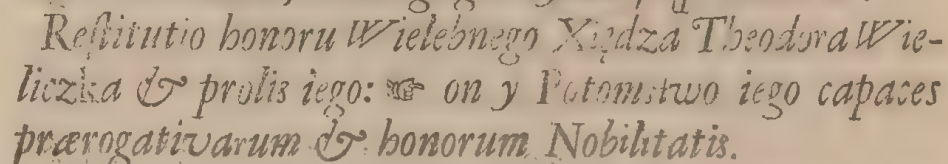 Reſtitutio honoru Wielebnego Xiędza Theodora Wie-
liczka & prolis iego: ☞ on y Potomſtwo iego capaces
prærogativarum & honorum Nobilitatis.